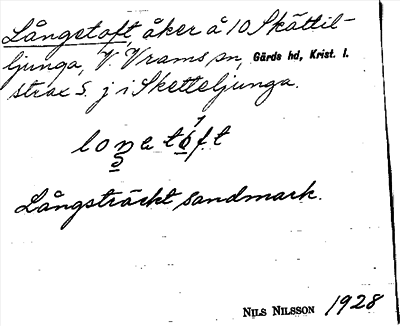 Långetoft åker å 10 Skättil-
ljunga, V. Vrams sn, Gärds hd, Krist. l.
strax S. j i Sketteljunga.
Långsträckt sandmark.
NILS NILSSON 1928